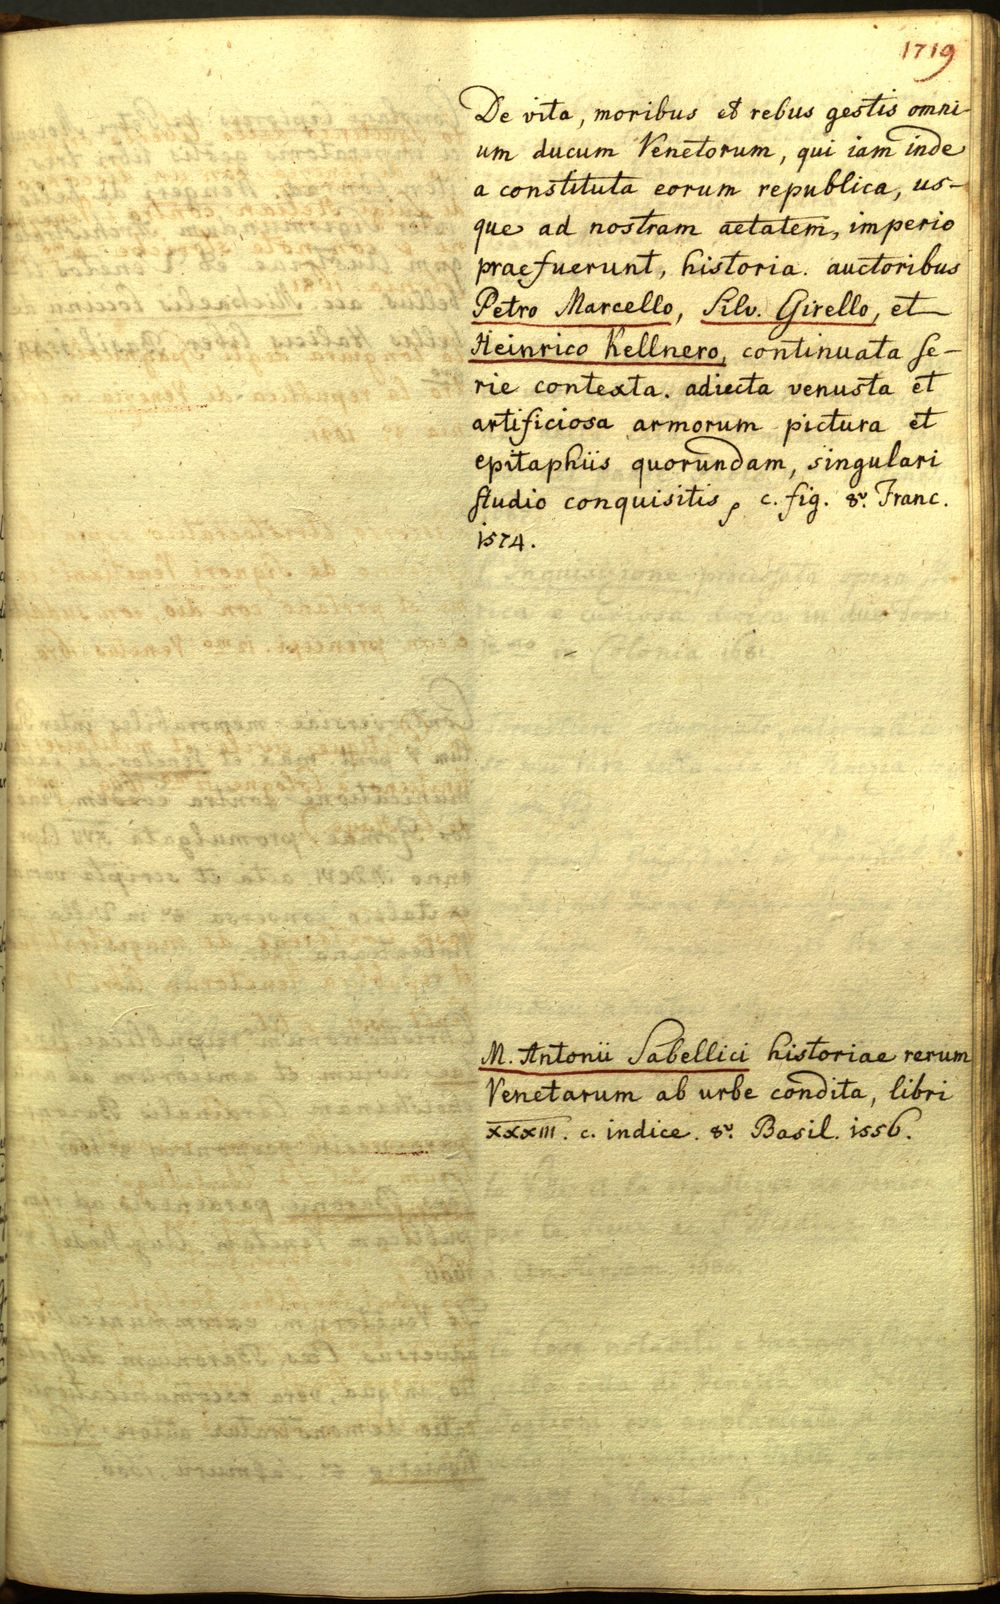 1719
De vita, moribus et rebus gestis omni-
um ducum Venetorum, qui iam inde
a constituta eorum republica, us-
que ad nostram aetatem, imperio
praefuerunt, historia. auctoribus
Petro Marcello, Silv. Girello, et
Heinrico Kellnero, continuata se-
rie contexta. adiecta venusta et
artificiosa armorum pictura et
epitaphiis quorundam, singulari
studio conquisitis, c. fig. 8v. Franc.
1574.
M. Antonii Sabellici historiae rerum
Venetarum ab urbe condita, libri
XXXIII. c. indice. 8v. Basil. 1556.